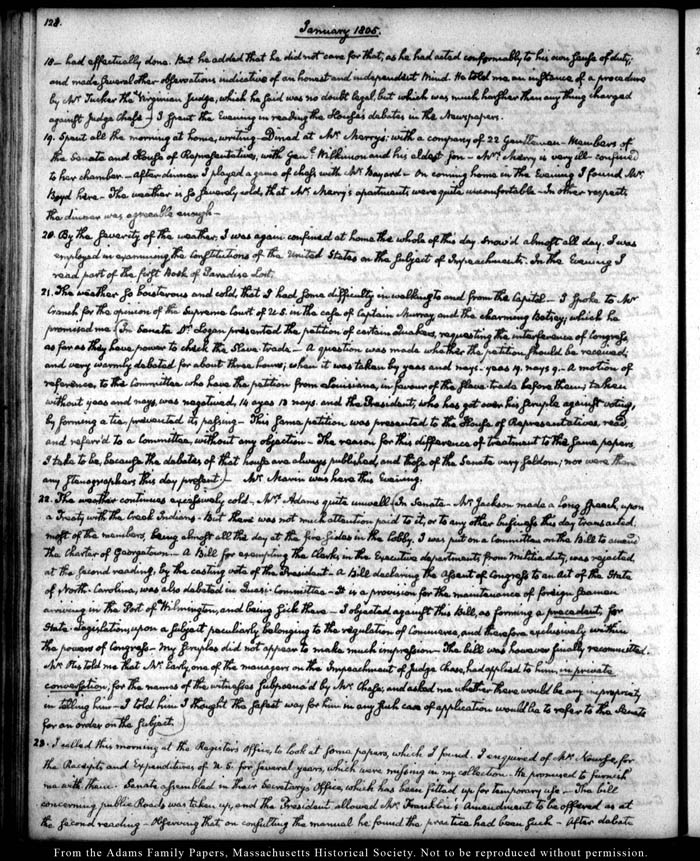 128.
January 1805.
18— had effectually done. But he added that he did not care for that, as he had acted conformably to his own sense of duty;
and made several other observations indicative of an honest and independent mind. He told me an instance of a procedure
by Mr. Tucker the Virginian Judge, which he said was no doubt legal, but which was much harsher than any thing charged
against Judge Chase) — I spent the Evening in reading the House's debates in the Newspapers.
19. Spent all the morning at home, writing— Dined at Mr. Merry's: with a company of 22 Gentlemen— Members of
the Senate and House of Representatives, with Genl. Wilkinson and his eldest son— Mrs. Merry is very ill— confined
to her chamber— After dinner I played a game of chess with Mr. Bayard— On coming home in the Evening I found Mr.
Boyd here— The weather is so severely cold, that Mr. Merry's apartments were quite uncomfortable— In other respects
the dinner was agreeable enough—
20. By the severity of the weather I was again confined at home the whole of this day. Snow'd almost all day. I was
employed in examining the Constitutions of the United States on the subject of Impeachments. In the Evening I
read part of the first Book of Paradise Lost.
21. The weather so boisterous and cold, that I had some difficulty in walking to and from the Capitol— I spoke to Mr.
Cranch, for the opinion of the Supreme Court of U.S. in the case of Captain Murray and the charming Betsey; which he
promised me (In Senate Dr. Logan presented the petition of certain Quakers, requesting the interference of Congress,
as far as they have power to check the Slave trade— A question was made whether the petition should be received;
and very warmly debated for about three hours; when it was taken by yeas and nays: yeas 19. nays 9.— A motion of
reference, to the Committee who have the petition from Louisiana, in favour of the slave trade before them; taken
without yeas and nays, was negatived, 14 ayes 13 nays. and the President, who has got over his scruple against voting,
by forming a tie prevented its passing— This same petition was presented to the House of Representatives, read,
and referr'd to a Committee, without any objection— The reason for this difference of treatment to the same papers,
I take to be, because the debates of that house are always published, and those of the Senate very seldom; nor were there
any stenographers this day present)— Mr. was here this Evening.
22. The weather continues excessively cold— Mrs. Adams quite unwell (In Senate Mr. Jackson made a long speech, upon
a Treaty with the Creek Indians— But there was not much attention paid to it, or to any other business this day transacted.
most of the members, being almost all the day at the fire-sides in the lobby. I was put on a Committee on the Bill to amend
the Charter of Georgetown— A Bill for exempting the Clerks in the Executive departments from Militia duty, was rejected
at the second reading, by the casting vote of the President— A Bill declaring the Assent of Congress to an Act of the State
of North-Carolina, was also debated in Quasi-Committee— It is a provision for the maintenance of foreign seamen
arriving in the Port of Wilmington, and being sick there— I objected against this Bill, as forming a precedent for
State-legislation, upon a subject peculiarly belonging to the regulation of Commerce, and therefore exclusively within
the powers of Congress— My scruples did not appear to make much impression— The bill was however finally recommitted.
Mr. Otis told me that Mr. Early, one of the managers on the Impeachment of Judge Chase, had applied to him, in private
conversation, for the names of the witnesses subpoena'd by Mr. Chase, and asked me whether there would be any impropriety
in telling him— I told him I thought the safest way for him in any such case of application would be to refer to the Senate
for an order on the subject.)
23. I called this morning at the Register's Office, to look at some papers, which I found. I enquired of Mr. Nourse, for
the Receipts and Expenditures of U.S. for several years, which were missing in my collection. He promised to furnish
me with them. Senate assembled in their Secretary's Office, which has been fitted up for temporary use— The bill
concerning public Roads was taken up, and the President allowed Mr. Franklin's Amendment to be offered as at
the second reading— observing that on consulting the manual he found the practice had been such— After debate
From the Adams Family Papers, Massachusetts Historical Society. Not to be reproduced without permission.